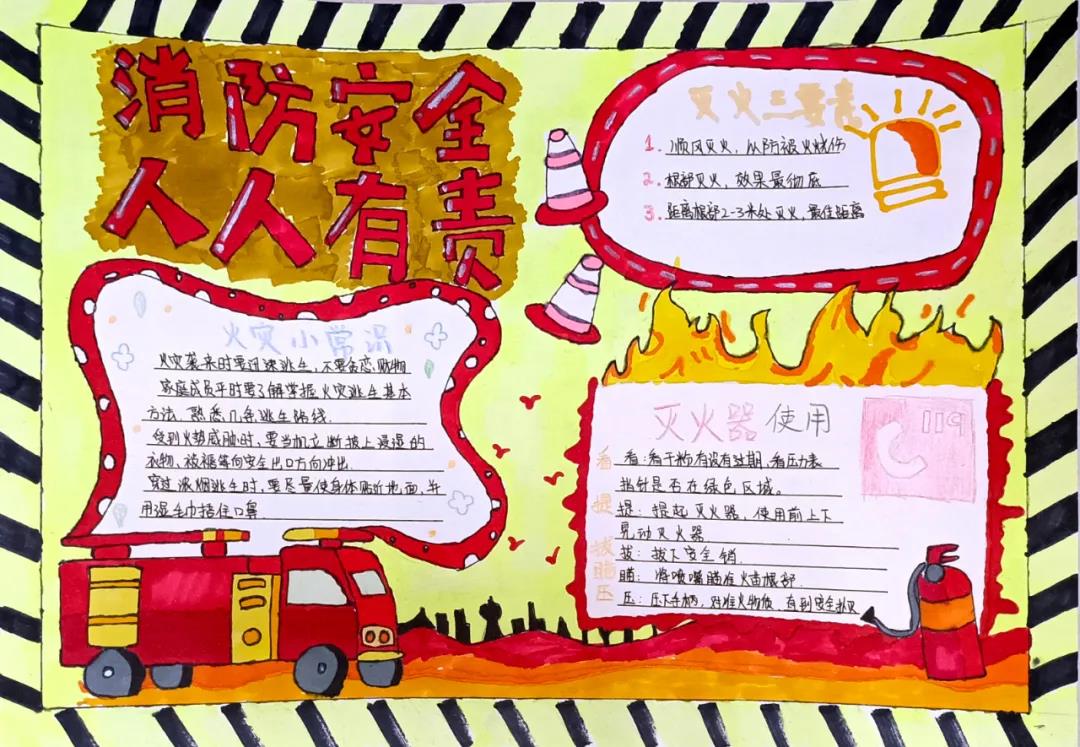 消防安全
人人有责
灭火三要素
1. 顺风灭火，以防被火烧伤
2. 根部灭火，效果最彻底
3. 距离根部2-3米处灭火，最佳距离
火灾小常识
火灾袭来时要迅速逃生，不要贪恋财物
家庭成员平时要了解掌握火灾逃生基本
方法、熟悉几条逃生路线.
受到火势威胁时，要当机立断披上浸湿的
衣物、被褥等向安全出口方向冲出.
穿过浓烟逃生时，要尽量使身体贴近地面，并
用湿毛巾捂住口鼻
灭火器使用
119
看 看：看干粉有没有过期，看压力表
指针是否在绿色区域。
提 提：提起灭火器，使用前上下
晃动灭火器
拔 拔：拔下安全销.
瞄 瞄：将喷嘴瞄准火苗根部.
压 压：压下手柄，对准火物质，直到安全扑灭